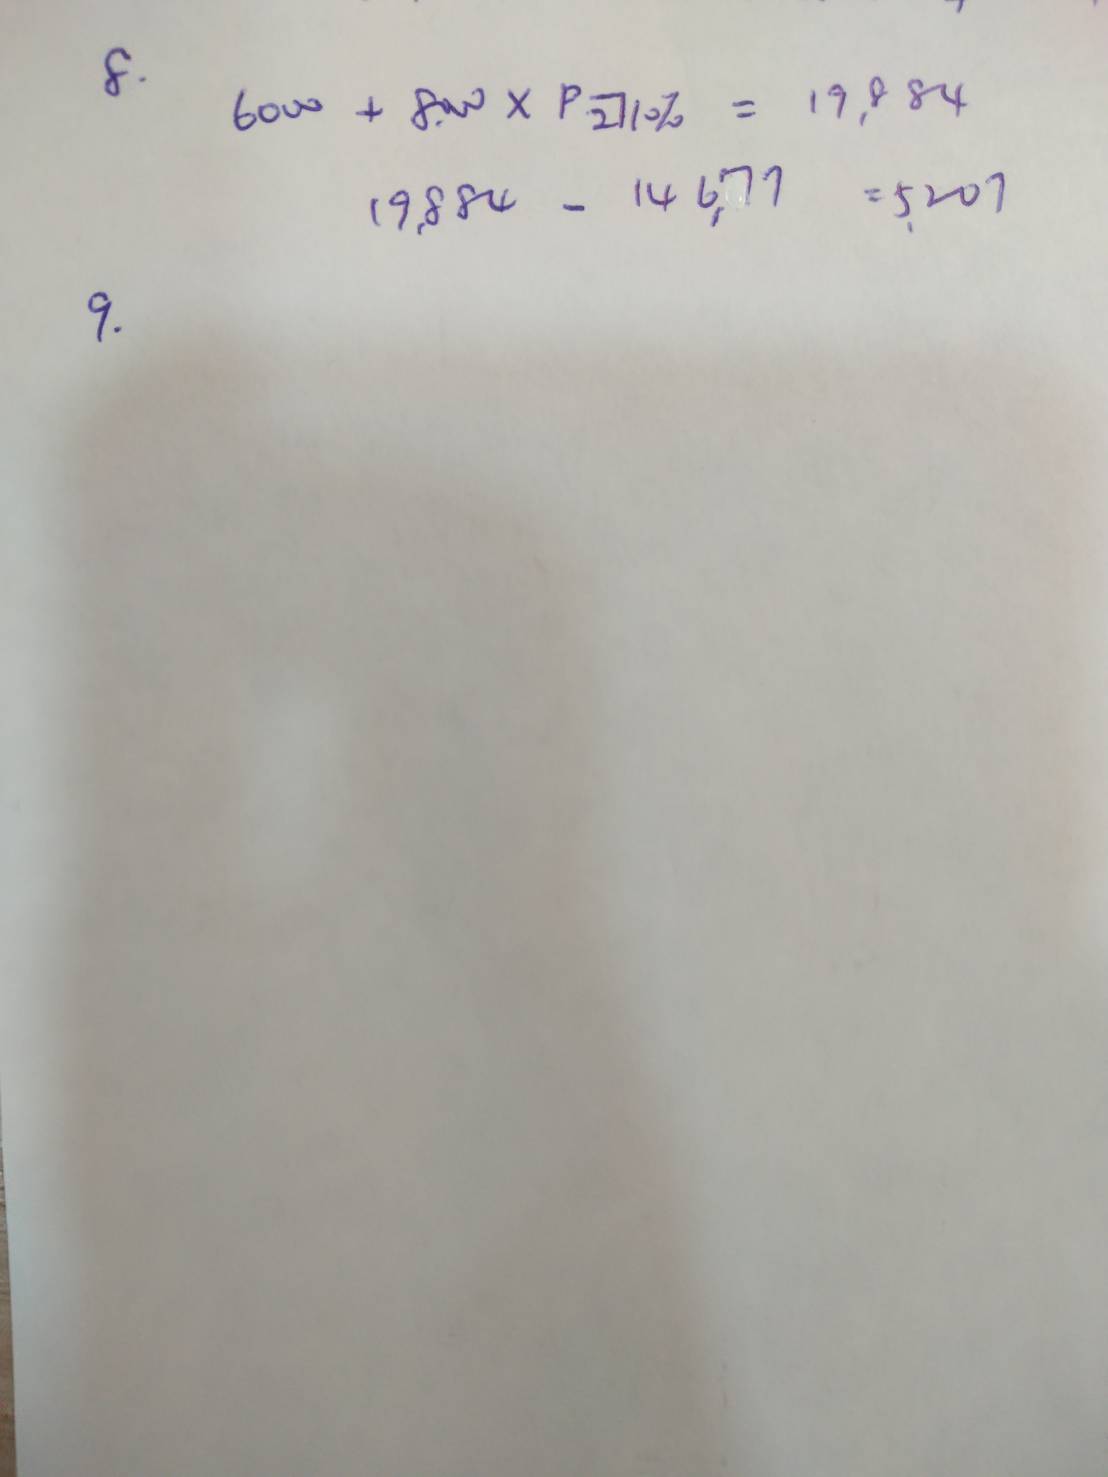 8.
6000 + 8,000 × P 2̅|10% = 19,884
19,884 - 146,77 = 5,207
9.